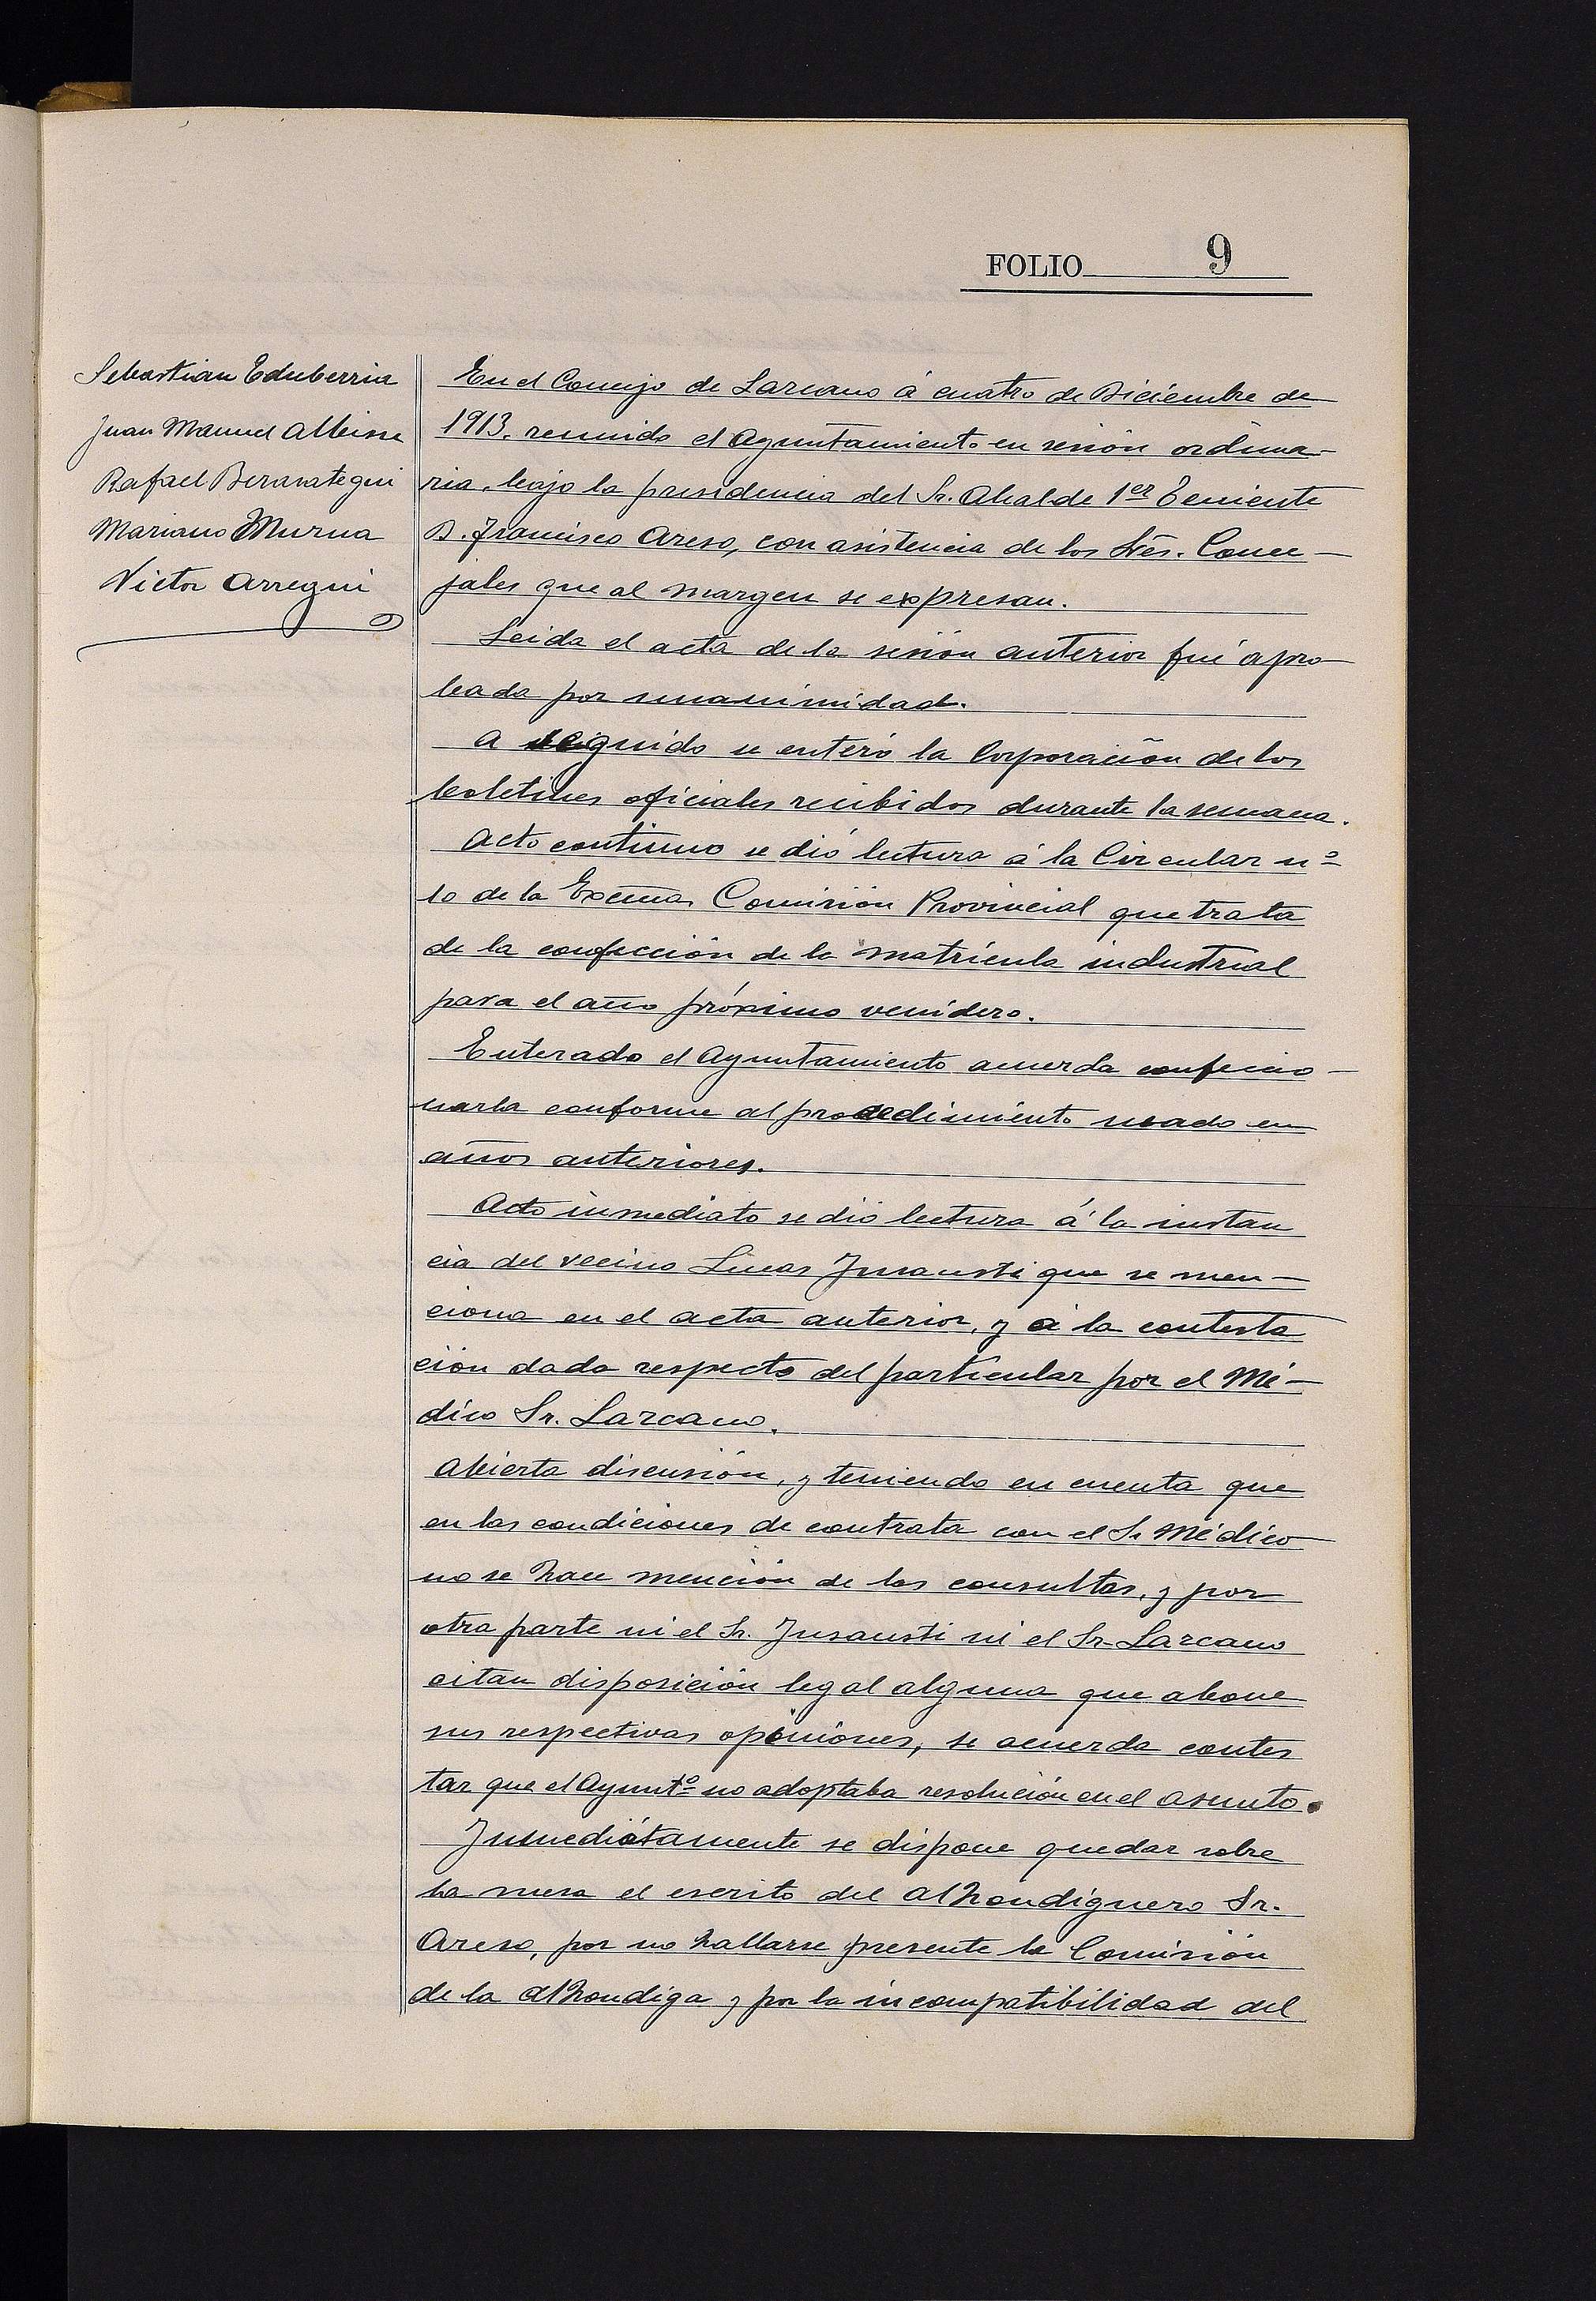 FOLIO 9
Sebastian Echeberria
Juan Manuel Albisu
Rafael Berasategui
Mariano Murua
Victor Arregui
En el Concejo de Lazcano á cuatro de Diciembre de
1913, reunido el Ayuntamiento en sesión ordina-
ria, bajo la presidencia del Sr. Alcalde 1er Teniente
D. Francisco Areso, con asistencia de los Srēs. Conce-
jales que al margen se expresan.
Leida el acta de la sesión anterior fué apro-
bada por unanimidad.
A seguido se enteró la Corporación de los
boletines oficiales recibidos durante la semana.
Acto continuo se dió lectura á la Circular nº
10 de la Excma Comisión Provincial que trata
de la confección de la matrícula industrial
para el año próximo venidero.
Enterado el Ayuntamiento acuerda confeccio-
narla conforme al procedimiento usado en
años anteriores.
Acto inmediato se dió lectura á la instan
cia del vecino Lucas Insausti que se men-
ciona en el acta anterior, y á la contesta
ción dada respecto del particular por el Mé-
dico Sr. Lazcano.
Abierta discusión, y teniendo en cuenta que
en las condiciones de contrata con el Sr Médico
no se hace mención de las consultas, y por
otra parte ni el Sr. Insausti ni el Sr Lazcano
citan disposición legal alguna que abone
sus respectivas opiniones, se acuerda contes
tar que el Ayuntº no adoptaba resolución en el asunto.
Inmediátamente se dispone quedar sobre
la mesa el escrito del alhondiguero Sr.
Areso, por no hallarse presente la Comisión
de la alhondiga y por la incompatibilidad del